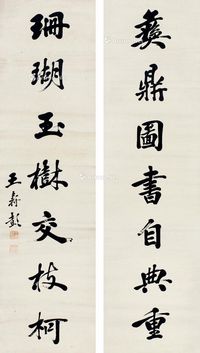 彝鼎圖書自典重
珊瑚玉樹交枝柯
王壽彭